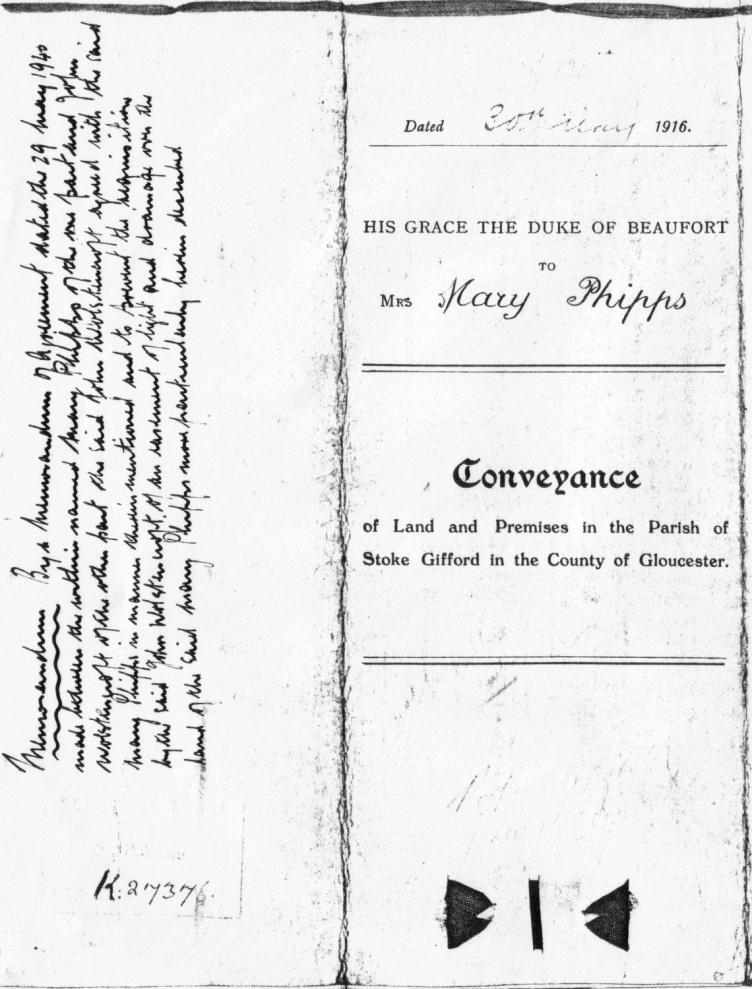 Memorandum By a Memorandum of Agreement dated the 29 May 1940
made between the within named Mary Phipps of the one part and John
Wolstencroft of the other part the said John Wolstencroft agreed with the said
Mary Phipps in manner therein mentioned and to prevent the acquisition
by the said John Wolstencroft of an easement of light and drainage over the
land of the said Mary Phipps more particularly herein described
K: 27376.
Dated 30th May 1916.
HIS GRACE THE DUKE OF BEAUFORT
TO
MRS Mary Phipps
Conveyance
of Land and Premises in the Parish of
Stoke Gifford in the County of Gloucester.